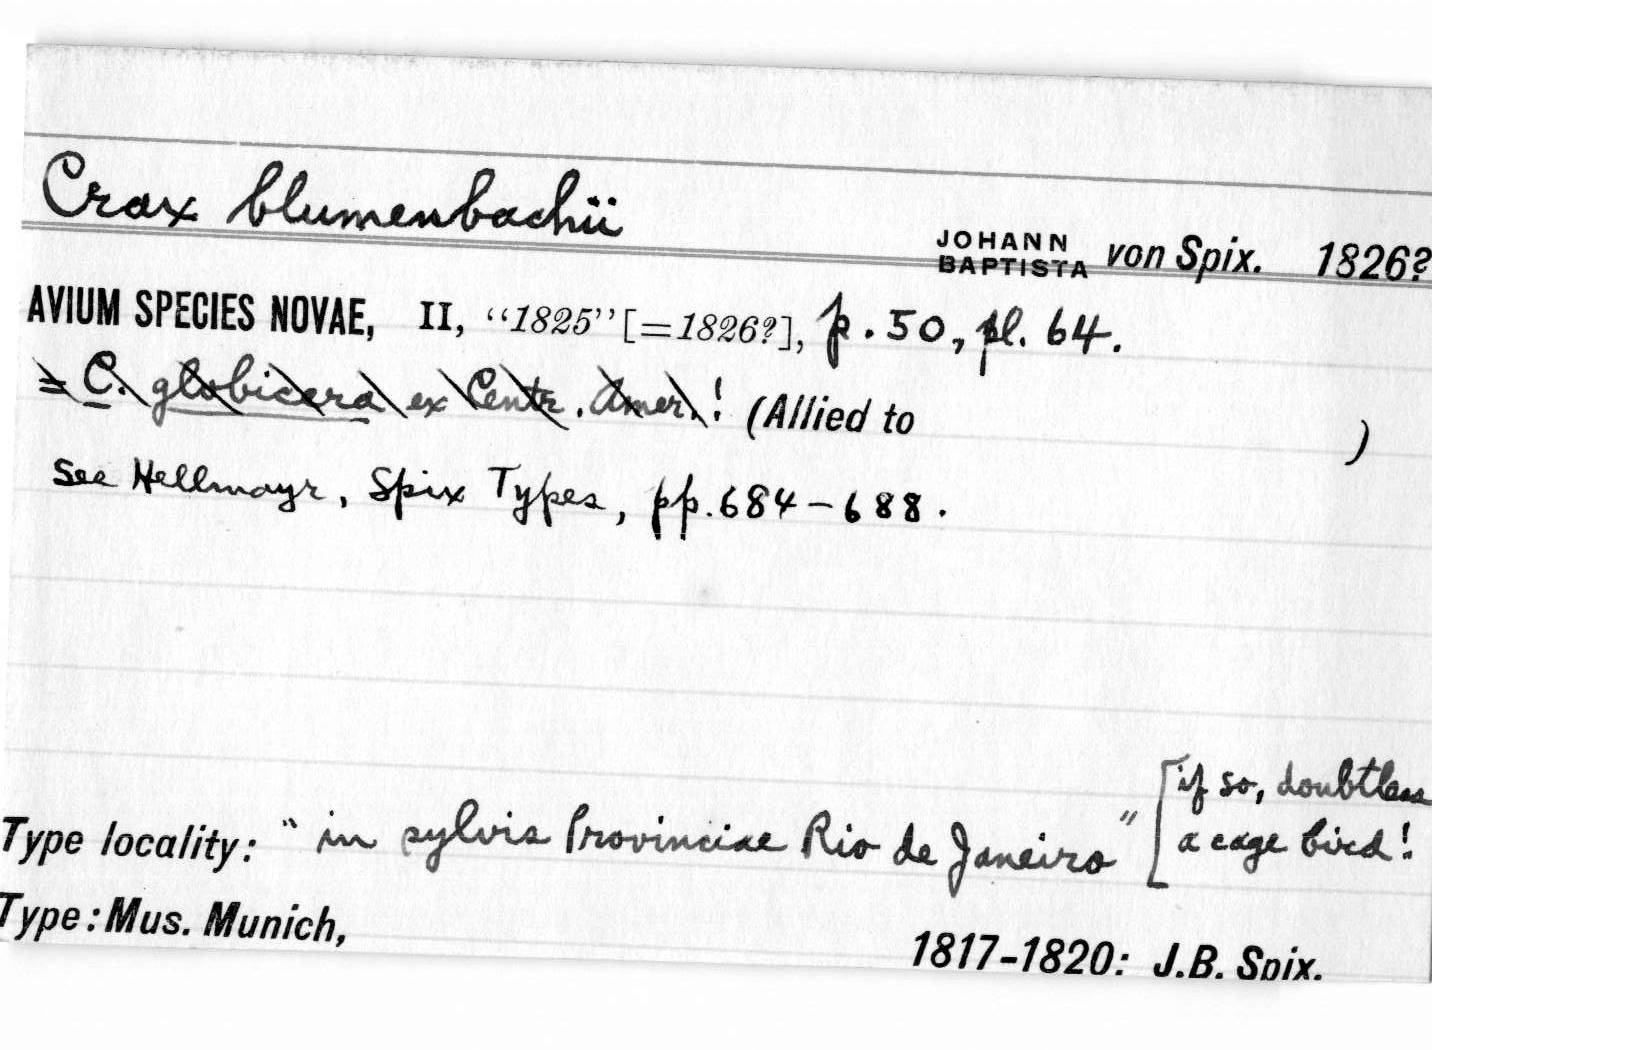 Crax blumenbachii
JOHANN BAPTISTA von Spix. 1826?
AVIUM SPECIES NOVAE, II, “1825” [=1826?], p. 50, pl. 64.
= C. globicera ex Centr. Amer.! (Allied to )
See Hellmayr, Spix Types, pp. 684-688.
[if so, doubtless
Type locality: "in sylvis Provinciae Rio de Janeiro" a cage bird!
Type: Mus. Munich,
1817-1820: J.B. Spix.